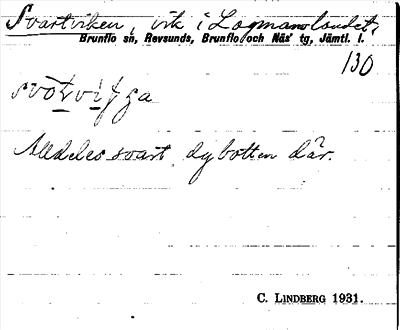 Svartviken, vik i Logmanslandet,
Brunflo sn, Revsunds, Brunflo och Näs' tg, Jämtl. l.
130
Alldeles svart dybotten där.
C. LINDBERG 1931.